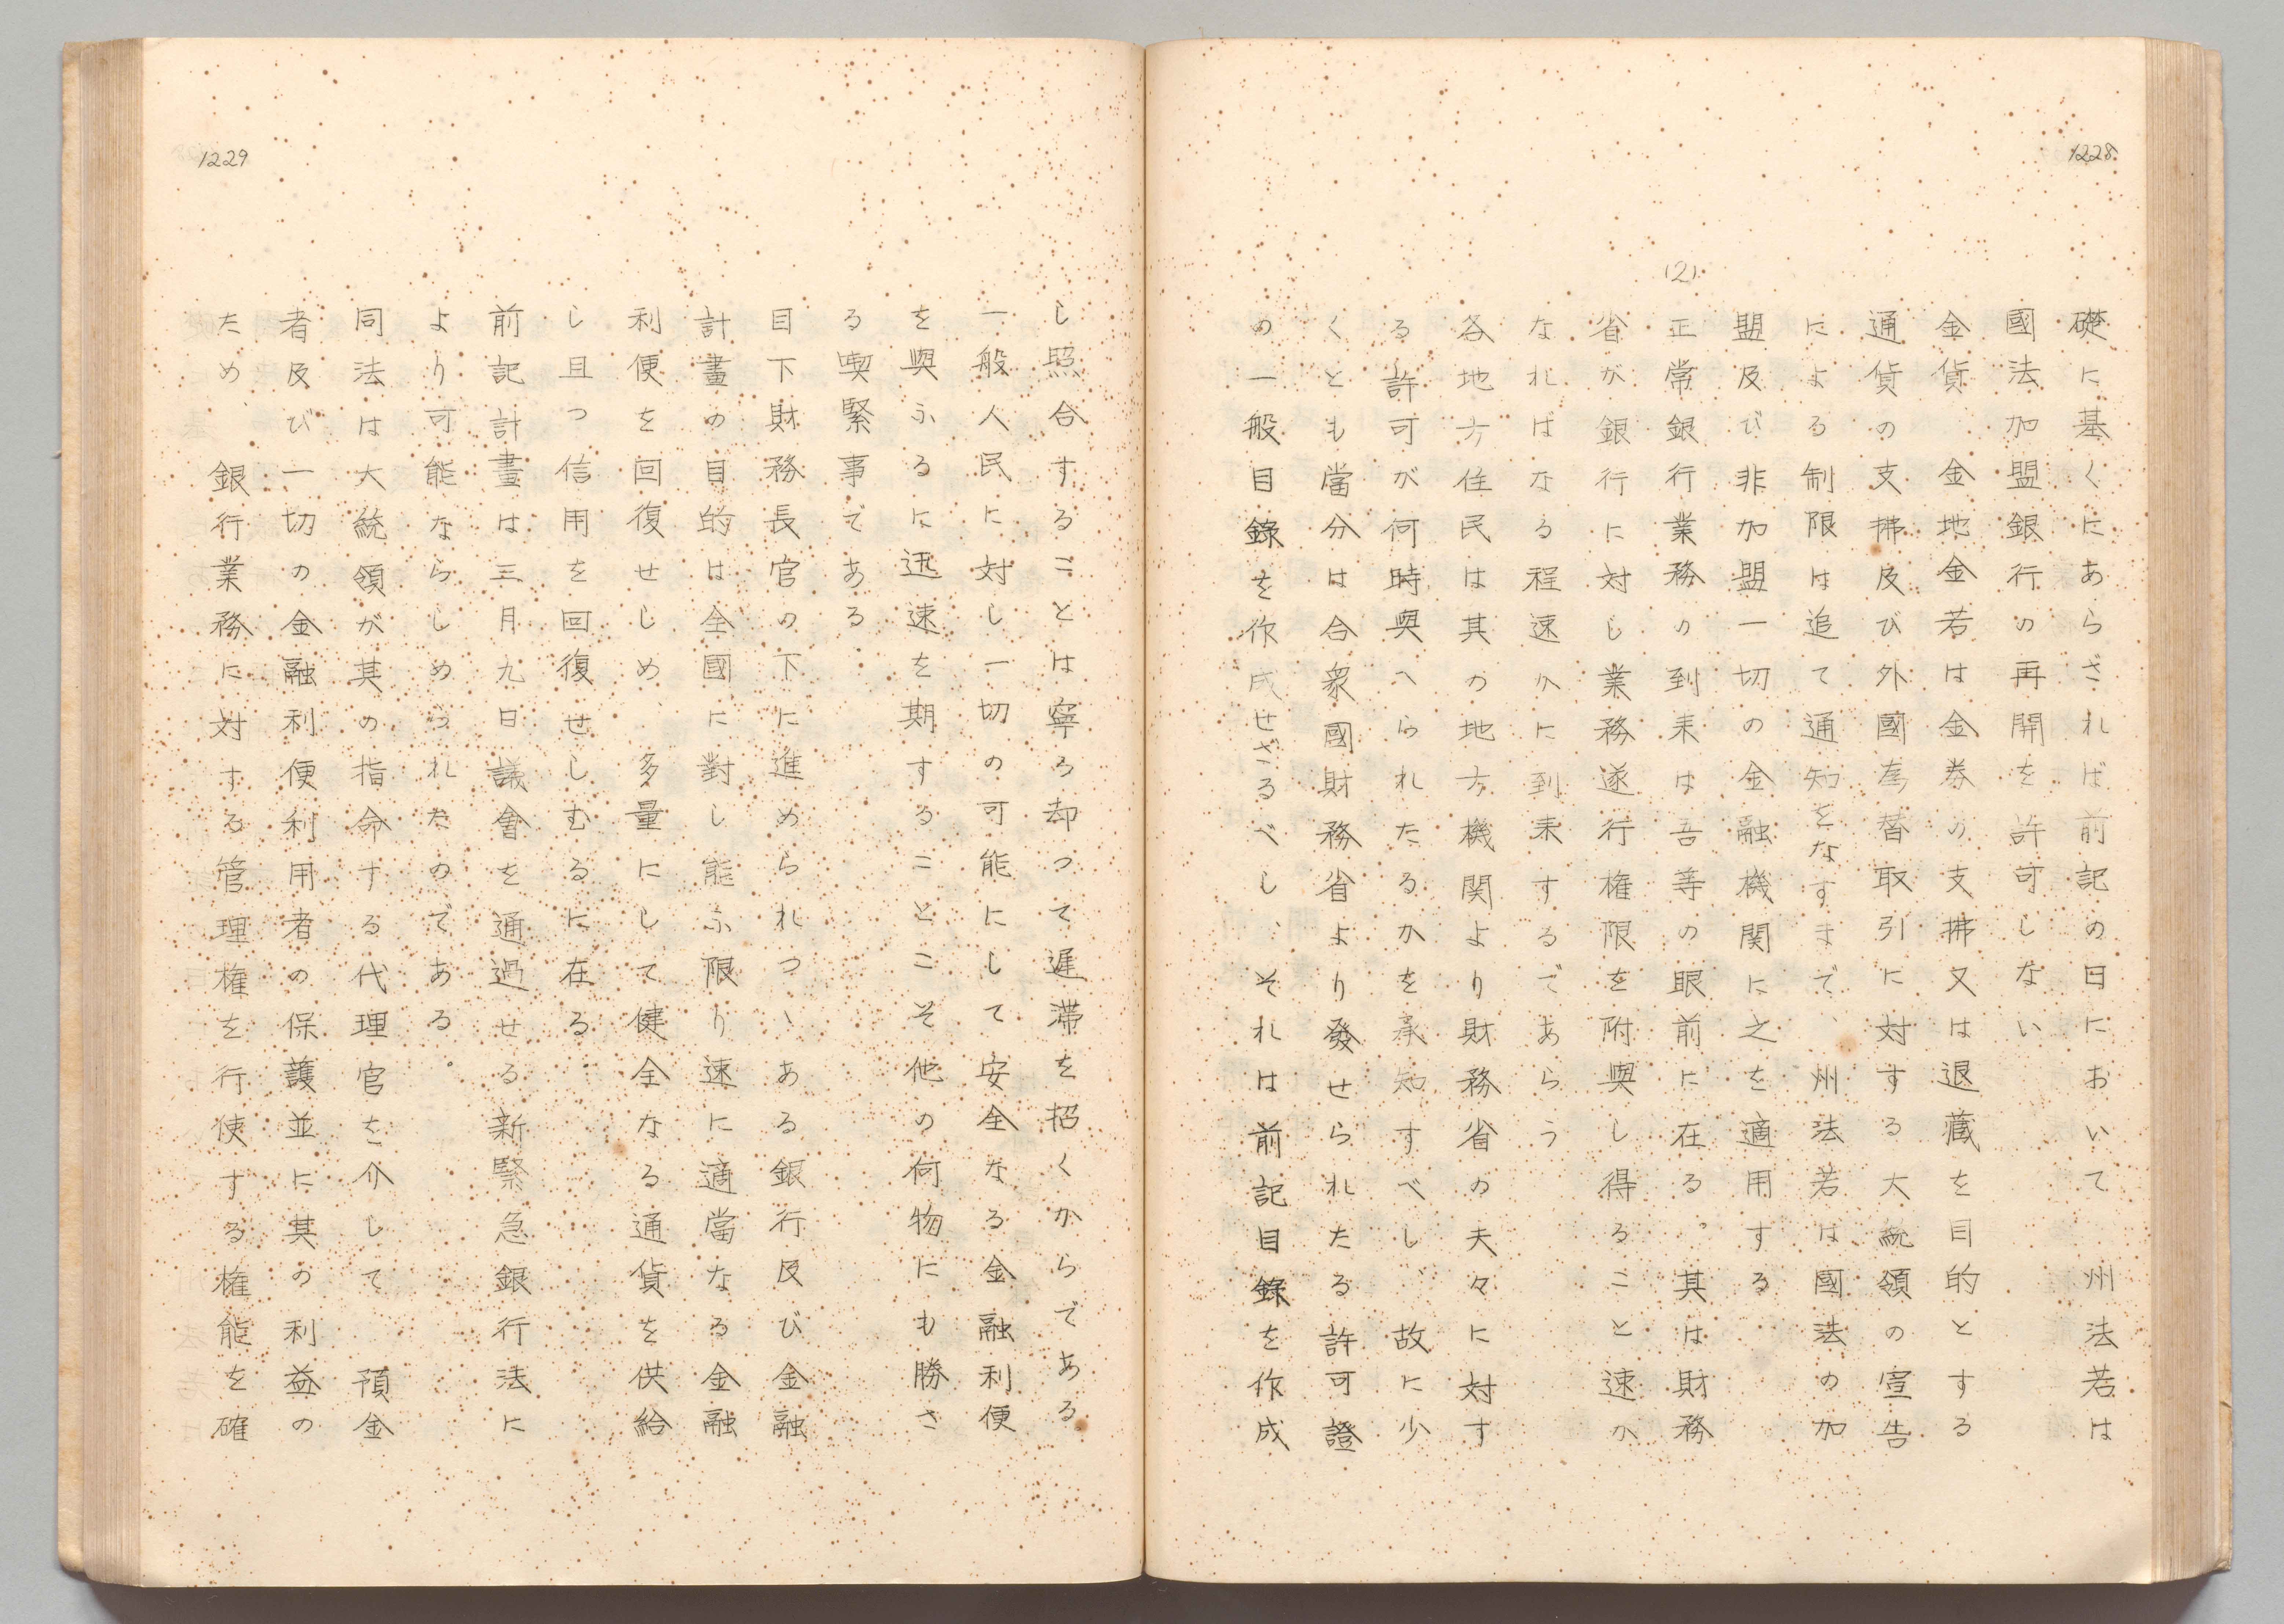 1228
礎に基くにあらざれば前記の日において 州法若は
國法加盟銀行の再開を許可しない
金貨 金地金若は金券の支拂又は退蔵を目的とする
通貨の支拂及び外國為替取引に対する大統領の宣告
による制限は追て通知をなすまで、州法若は國法の加
盟及び非加盟一切の金融機関に之を適用する
(2)
正常銀行業務の到来は吾等の眼前に在る。其は財務
省が銀行に対し業務遂行権限を附與し得ること速か
なればなる程速かに到来するであらう
各地方住民は其の地方機関より財務省の夫々に対す
る許可が何時與へられたるかを承知すべし、故に少
くとも當分は合衆國財務省より發せられたる許可證
の一般目錄を作成せざるべし、それは前記目錄を作成
1229
し照合することは寧ろ却つて遅滞を招くからである
一般人民に対し一切の可能にして安全なる金融利便
を與ふるに迅速を期することこそ他の何物にも勝さ
る喫緊事である
目下財務長官の下に進められつゝある銀行及び金融
計畫の目的は全國に對し能ふ限り速に適當なる金融
利便を回復せしめ、多量にして健全なる通貨を供給
し且つ信用を回復せしむるに在る
前記計畫は三月九日議會を通過せる新緊急銀行法に
より可能ならしめられたのである。
同法は大統領が其の指命する代理官を介して 預金
者及び一切の金融利便利用者の保護並に其の利益の
ため、銀行業務に対する管理権を行使する権能を確